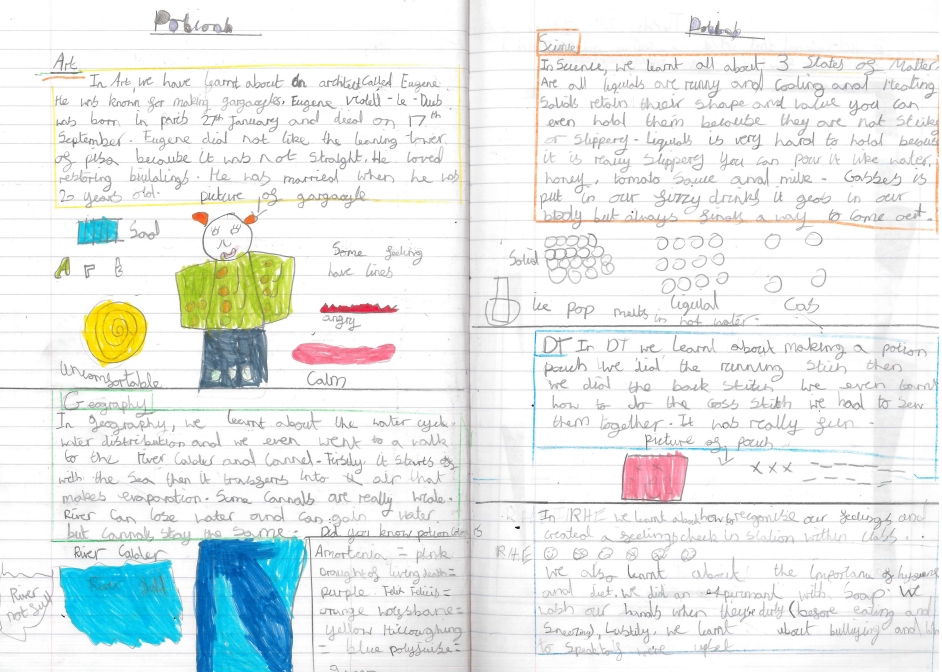 Potions
Art
In Art, we have learnt about an architect called Eugene.
He was known for making gargoyles. Eugene Violett-le-Dub
was born in paris 27th January and died on 17th
September. Eugene did not like the leaning tower
of pisa because it was not straight. He loved
restoring biuldings. He was married when he was
20 years old.
picture of gargoyle
Sad
Some feeling
have lines
angry
Uncomfortable
Calm
Geography
In geography, we learnt about the water cycle
water distribution and we even went to a walk
to the River Calder and Cannel. Firstly, it starts
with the Sea then it transfers into air that
makes evaporation. Some cannals are really wide.
River can lose water and can gain water
but cannals stay the same.
Did you know potion
River Calder
River
not still
River Still
Amortentia = pink
Draught of living death =
purple Felix Felicis =
orange wolfsbane =
yellow
= blue polyjuise =
Potions
Science
In Science, we learnt all about 3 States of Matter.
Are all liquids are runny and Cooling and Heating
Solids retain their shape and value you can
even hold them because they are not Sticky
or Slippery. Liquids is very hard to hold because
it is really Slippery you can pour it like water,
honey, tomato Souce and milk. Gasses is
put in our fuzzy drinks it goes in our
body but always finds a way to come out.
Solid
Liquid
Gas
Ice pop melts in hot water.
DT In DT we learnt about making a potion
pouch we did the running Stich then
we did the back Stitch We even learnt
how to do the Coss Stitch we had to Sew
them together. It was really fun.
picture of pouch
RHE
In RHE we learnt about how to regonise our feelings and
created a feeling check in station within class.
We also learnt about the Importance of
and diet. We did an experimant with Soap. We
wash our hands when they're dirty (before eating and
Sneezing), Lastly, we learnt about bullying and
to Speak to if we're upset